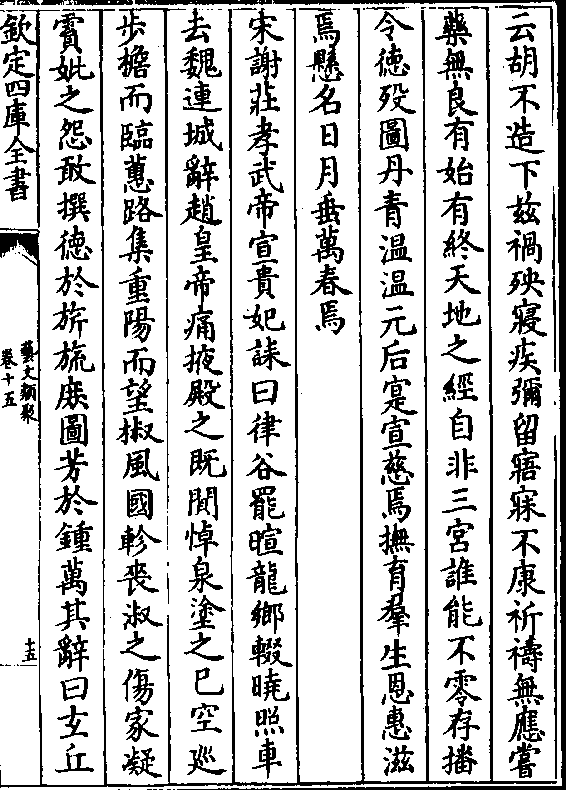 云胡不造下玆禍殃寢疾彌留寤寐不康祈禱無應嘗
藥無良有始有終天地之經自非三宮誰能不零存播
令徳殁圖丹青温温元后寔宣慈焉撫育羣生恩惠滋
焉懸名日月垂萬春焉
宋謝莊孝武帝宣貴妃誄曰律谷罷暄龍鄉輟曉照車
去魏連城辭趙皇帝痛掖殿之既闃悼泉塗之已空廵
步檐而臨蕙路集重陽而望椒風國軫喪淑之傷家凝
霣妣之怨敢撰徳於旂旒庻圖芳於鍾萬其辭曰玄丘
欽定四庫全書
藝文類聚
卷十五
十五